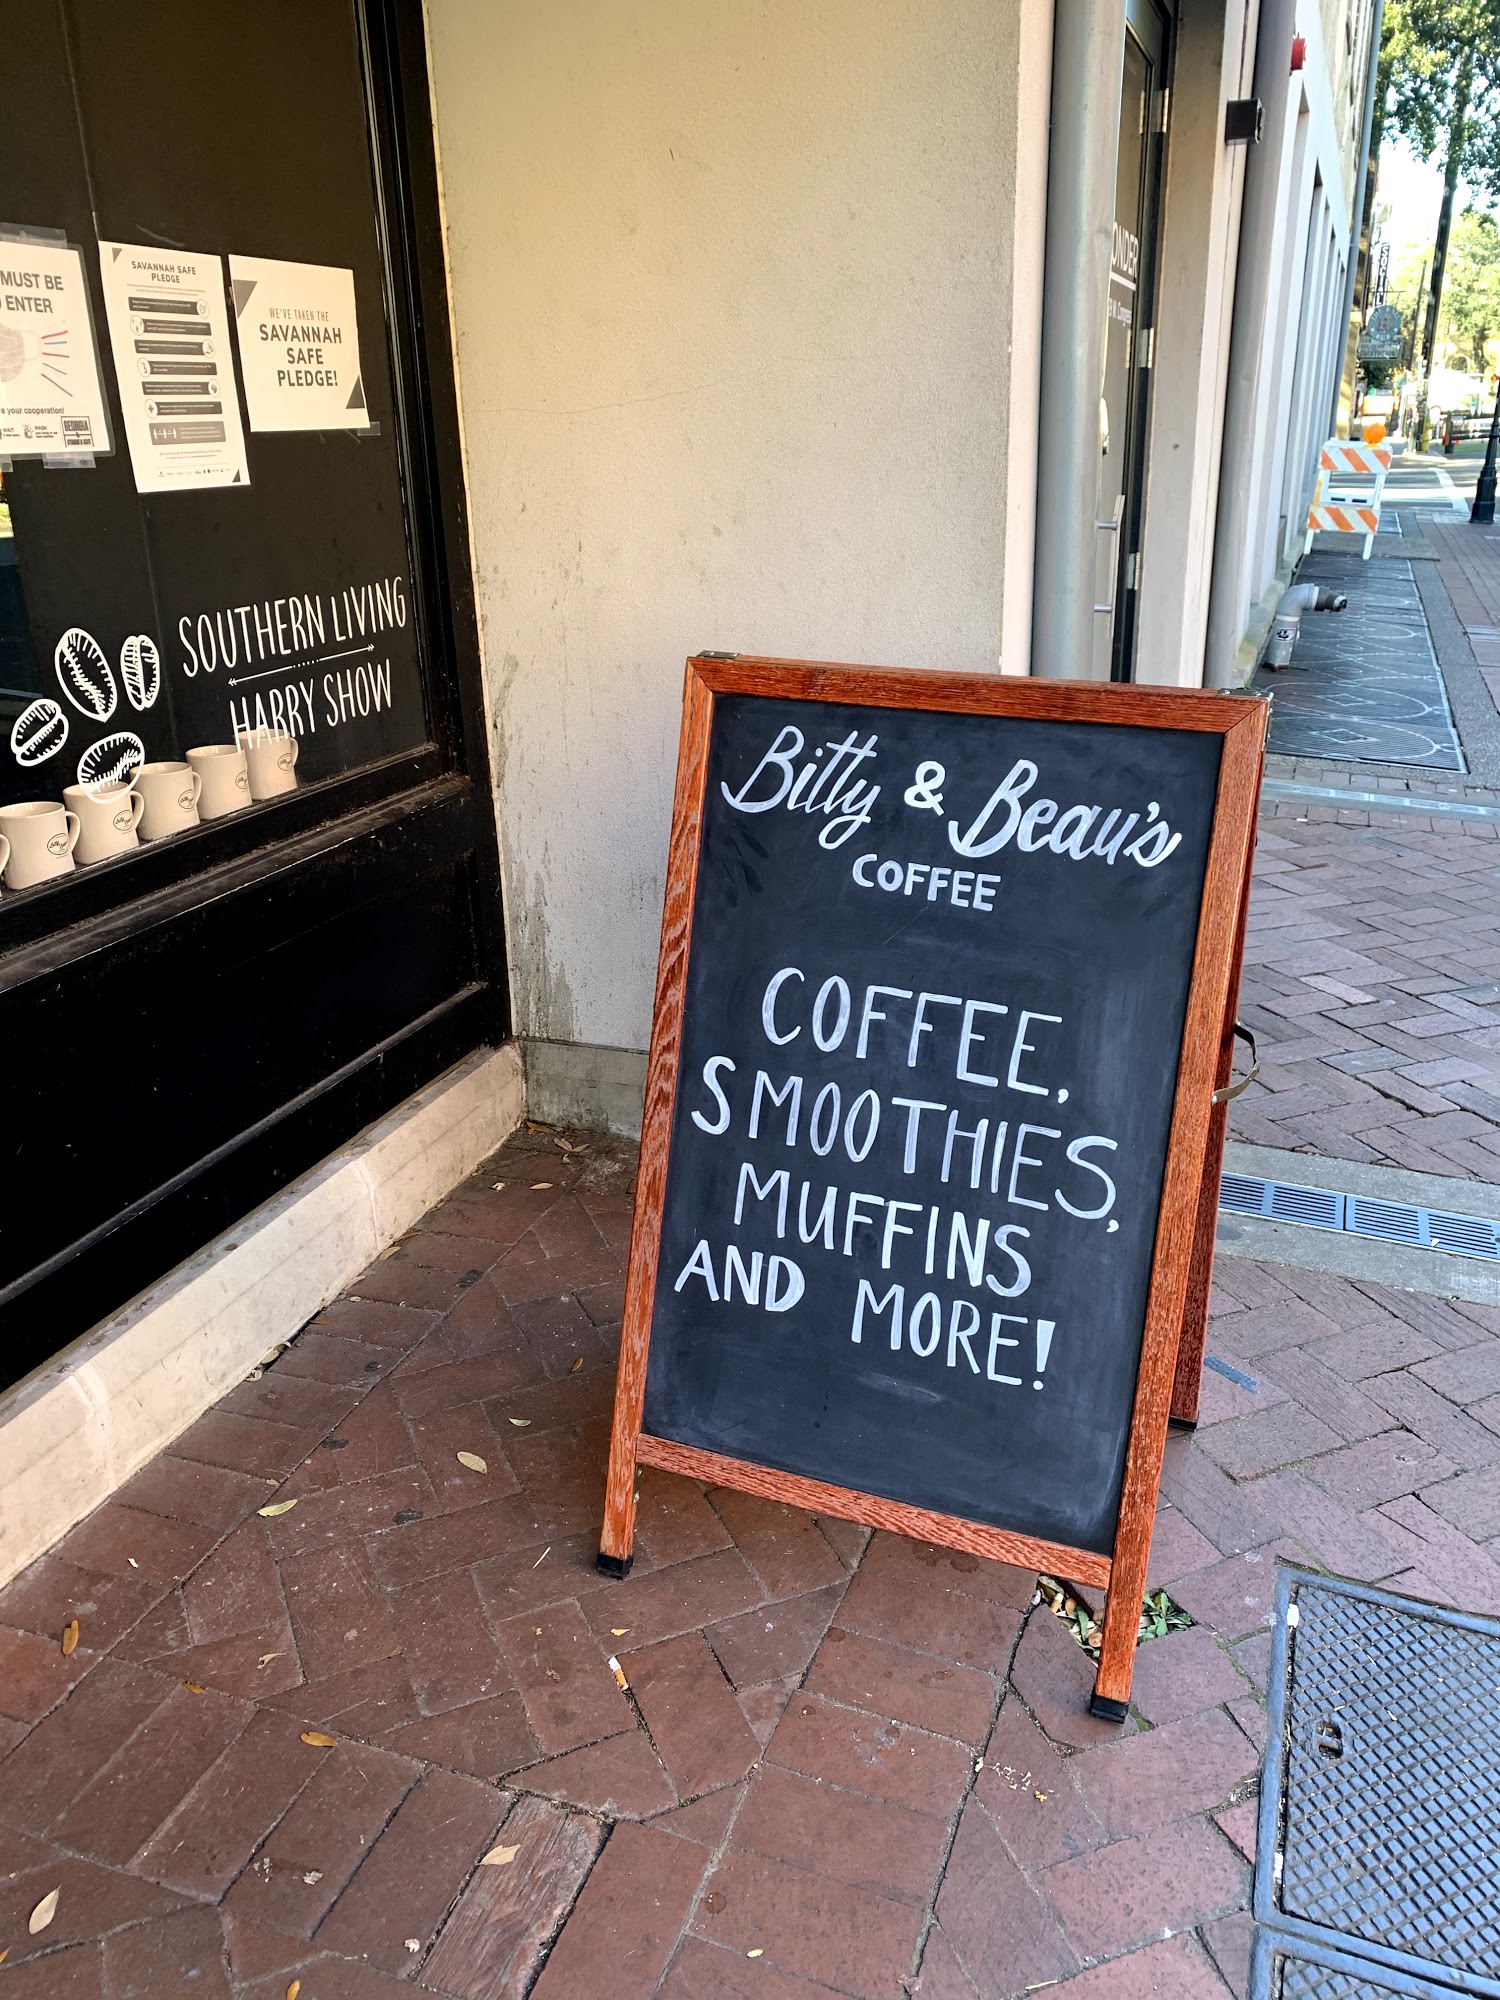 MUST BE
ENTER
your cooperation!
WAIT
WASH
GEORGIA
SAVANNAH SAFE
PLEDGE
WE'VE TAKEN THE
SAVANNAH
SAFE
PLEDGE!
SOUTHERN LIVING
HARRY SHOW
Bitty & Beau's
COFFEE
COFFEE,
SMOOTHIES,
MUFFINS
AND MORE!
ONDER
W. Congress